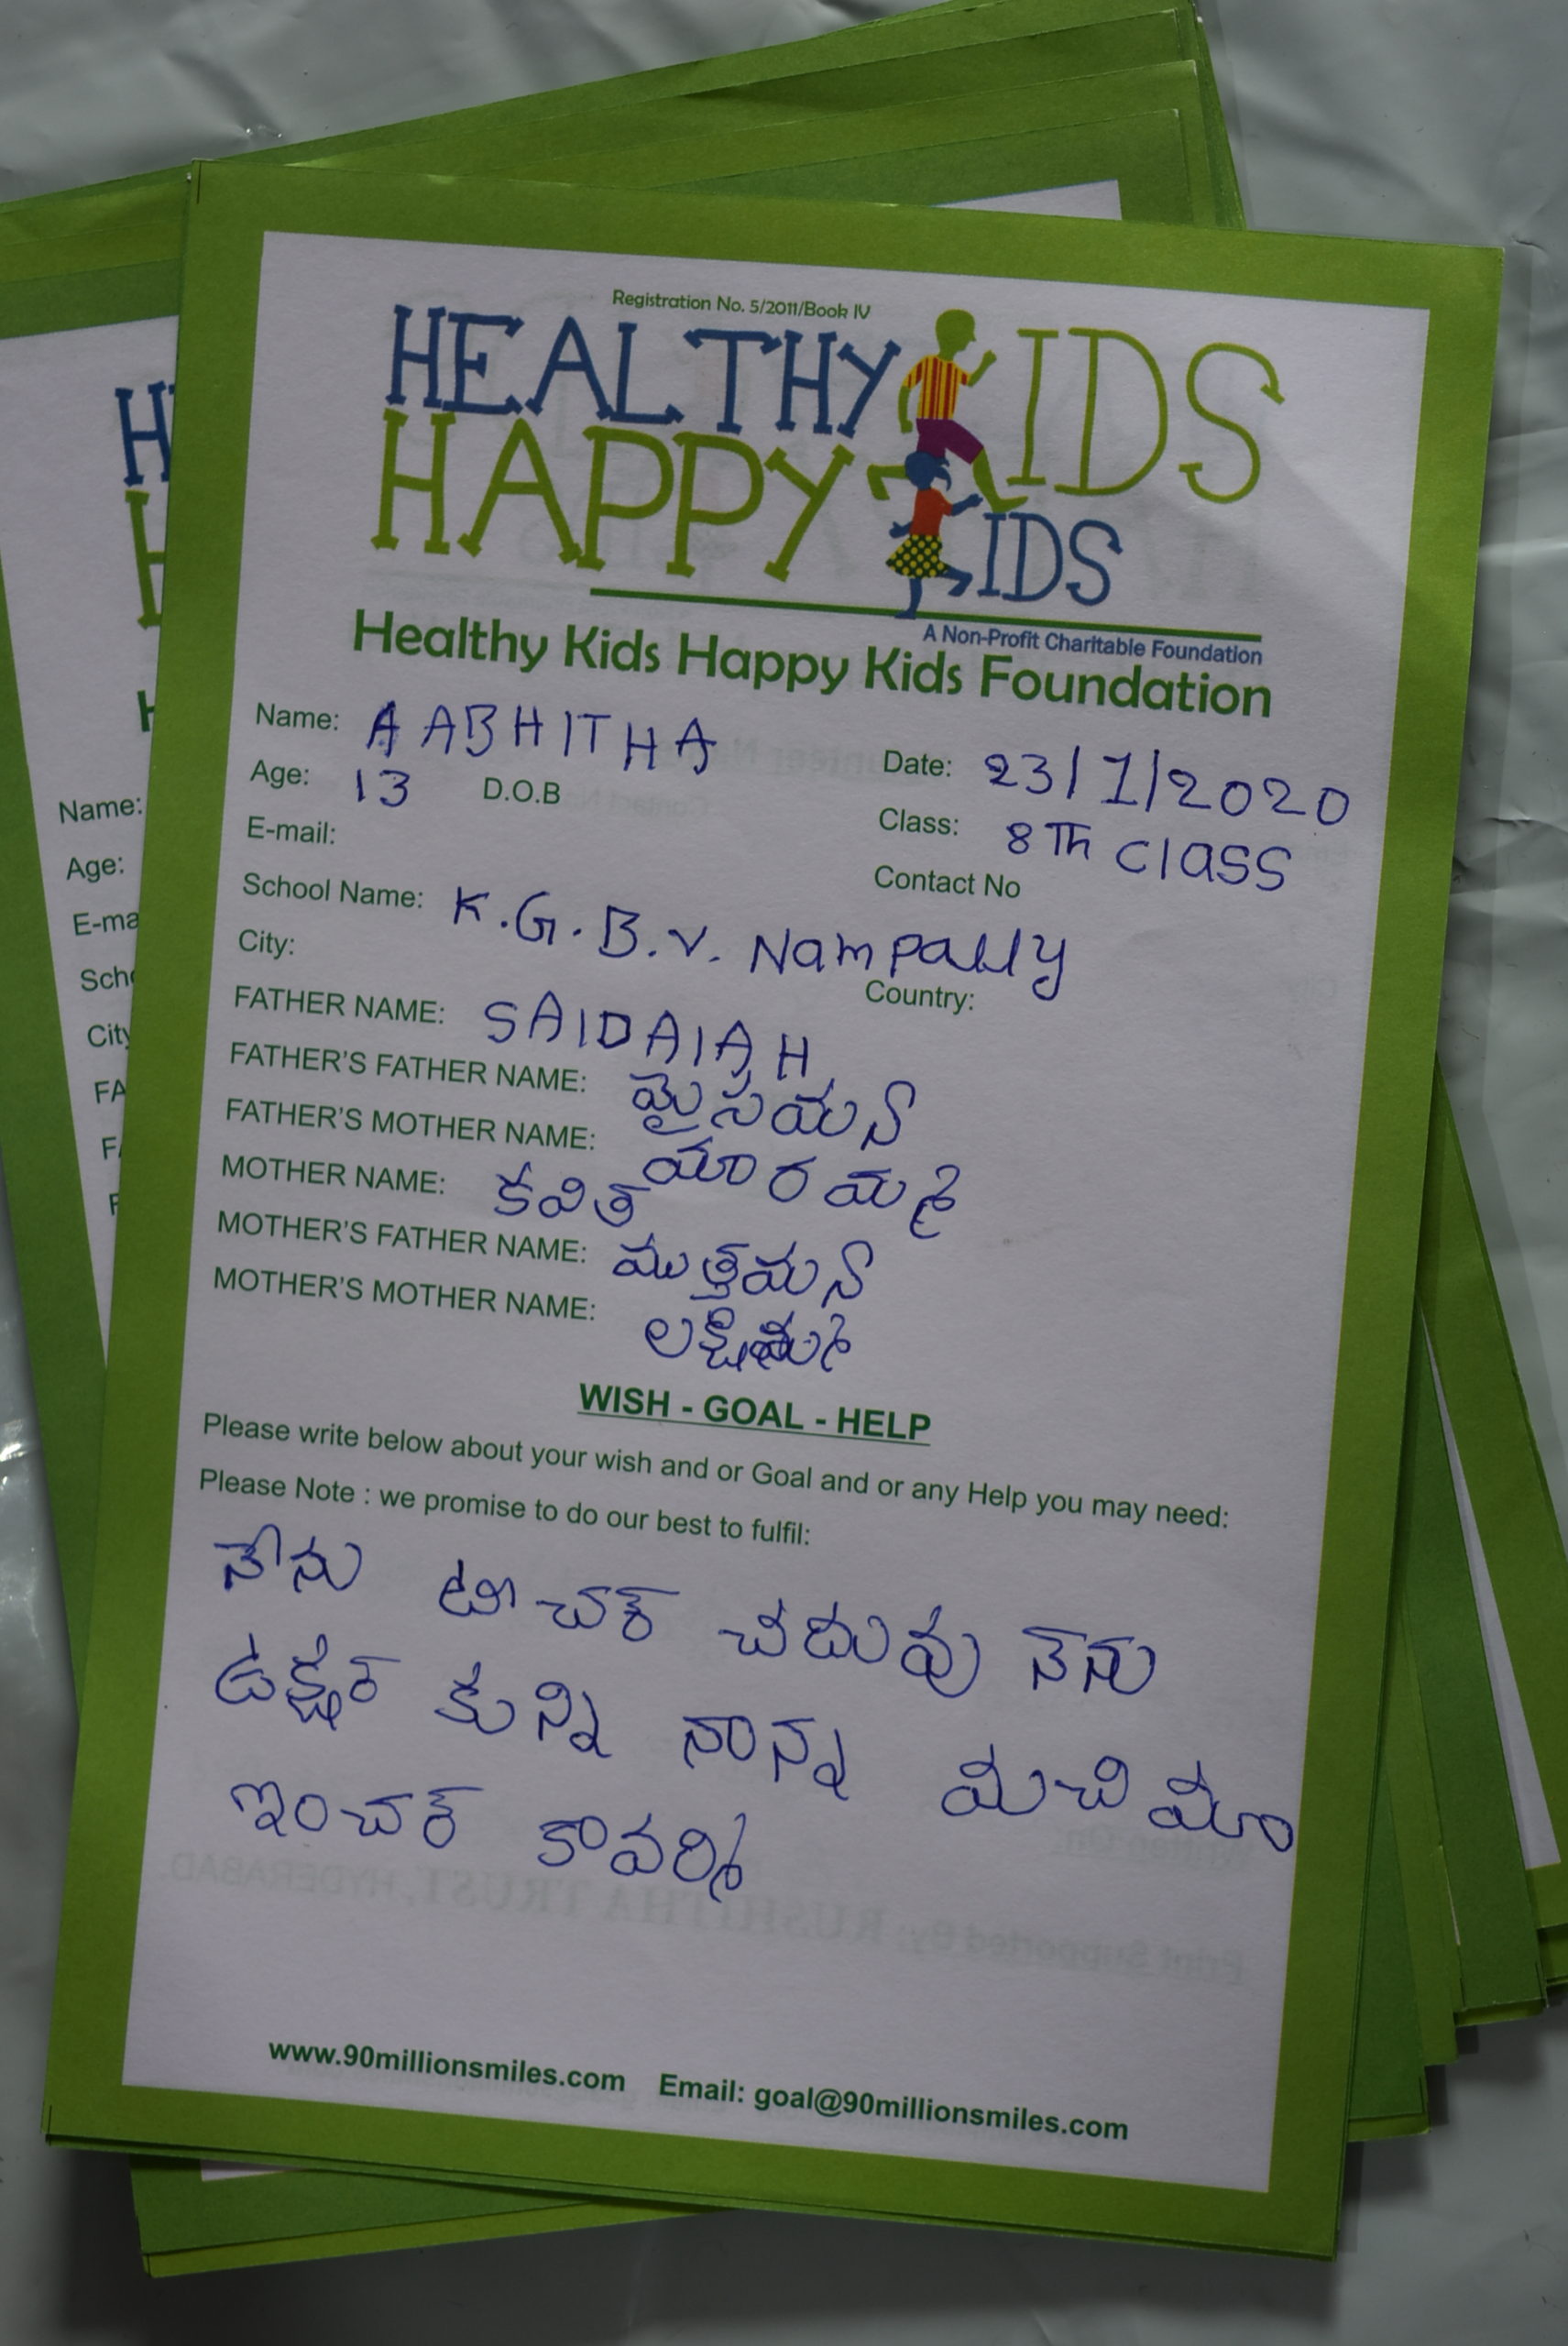 Registration No. 5/2011/Book IV
HEALTHY KIDS
HAPPY KIDS
A Non-Profit Charitable Foundation
Healthy Kids Happy Kids Foundation
Name: A ABHITHA
Date: 23/1/2020
Age: 13 D.O.B
Class: 8Th class
E-mail:
Contact No
School Name: K.G.B.V. Nampally
City:
Country:
FATHER NAME: SAIDAIAH
FATHER'S FATHER NAME: మైసయన
FATHER'S MOTHER NAME: మారమశ
MOTHER NAME: కవిత
MOTHER'S FATHER NAME: ముత్తమన
MOTHER'S MOTHER NAME:
WISH - GOAL - HELP
Please write below about your wish and or Goal and or any Help you may need:
Please Note : we promise to do our best to fulfil:
నేను టీచర్ చదువు నెను
ఉక్షర్ కున్ని నాన్న మీచి
ఇంచర్
www.90millionsmiles.com Email: goal@90millionsmiles.com
Name:
Age: